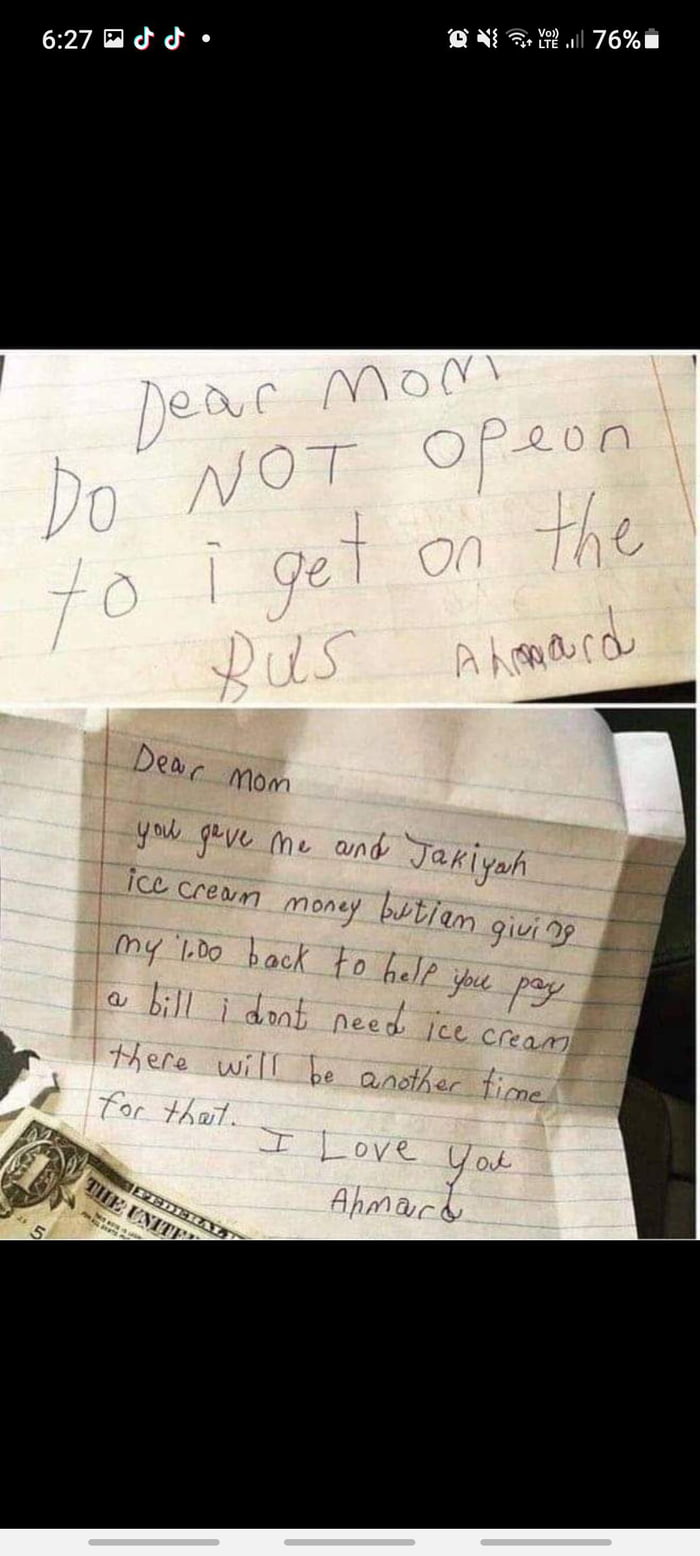 6:27
Vo))
LTE
76%
Dear MOM
Do NOT opeon
to i get on the
Bus Ahmard
Dear mom
you gave me and Jakiyah
ice cream money butiam giving
my 1.00 back to help you pay
a bill i dont need ice cream
there will be another time
for that.
I Love you
Ahmard
1
FEDERAL
THE UNITE
5